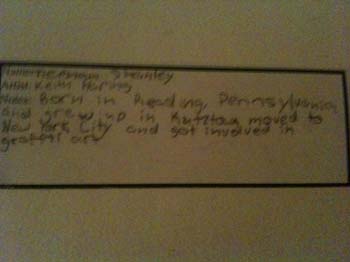 Name: Sheinley
Artist: Keith Haring
Notes: Born in Reading, Pennsylvania,
and grew up in Kutztown moved to
New York City and got involved in
graffiti art